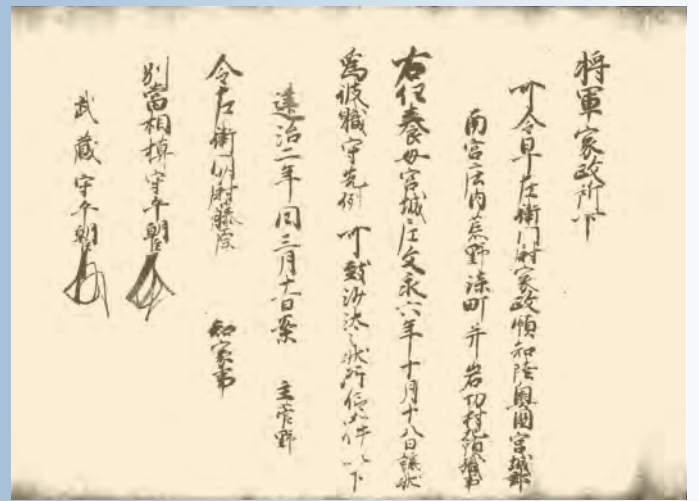 将軍家政所下
可令早左衛門尉家政領知陸奥國宮城郡
南宮庄内荒野柒町并岩切村職事
右任養母宮城文永六年十月十八日譲状
為彼職守先例可致沙汰之状所仰如件以下
建治二年閏三月十一日案主菅野
令左衛門尉藤原 知家事
別當相模守平朝臣
武蔵守平朝臣